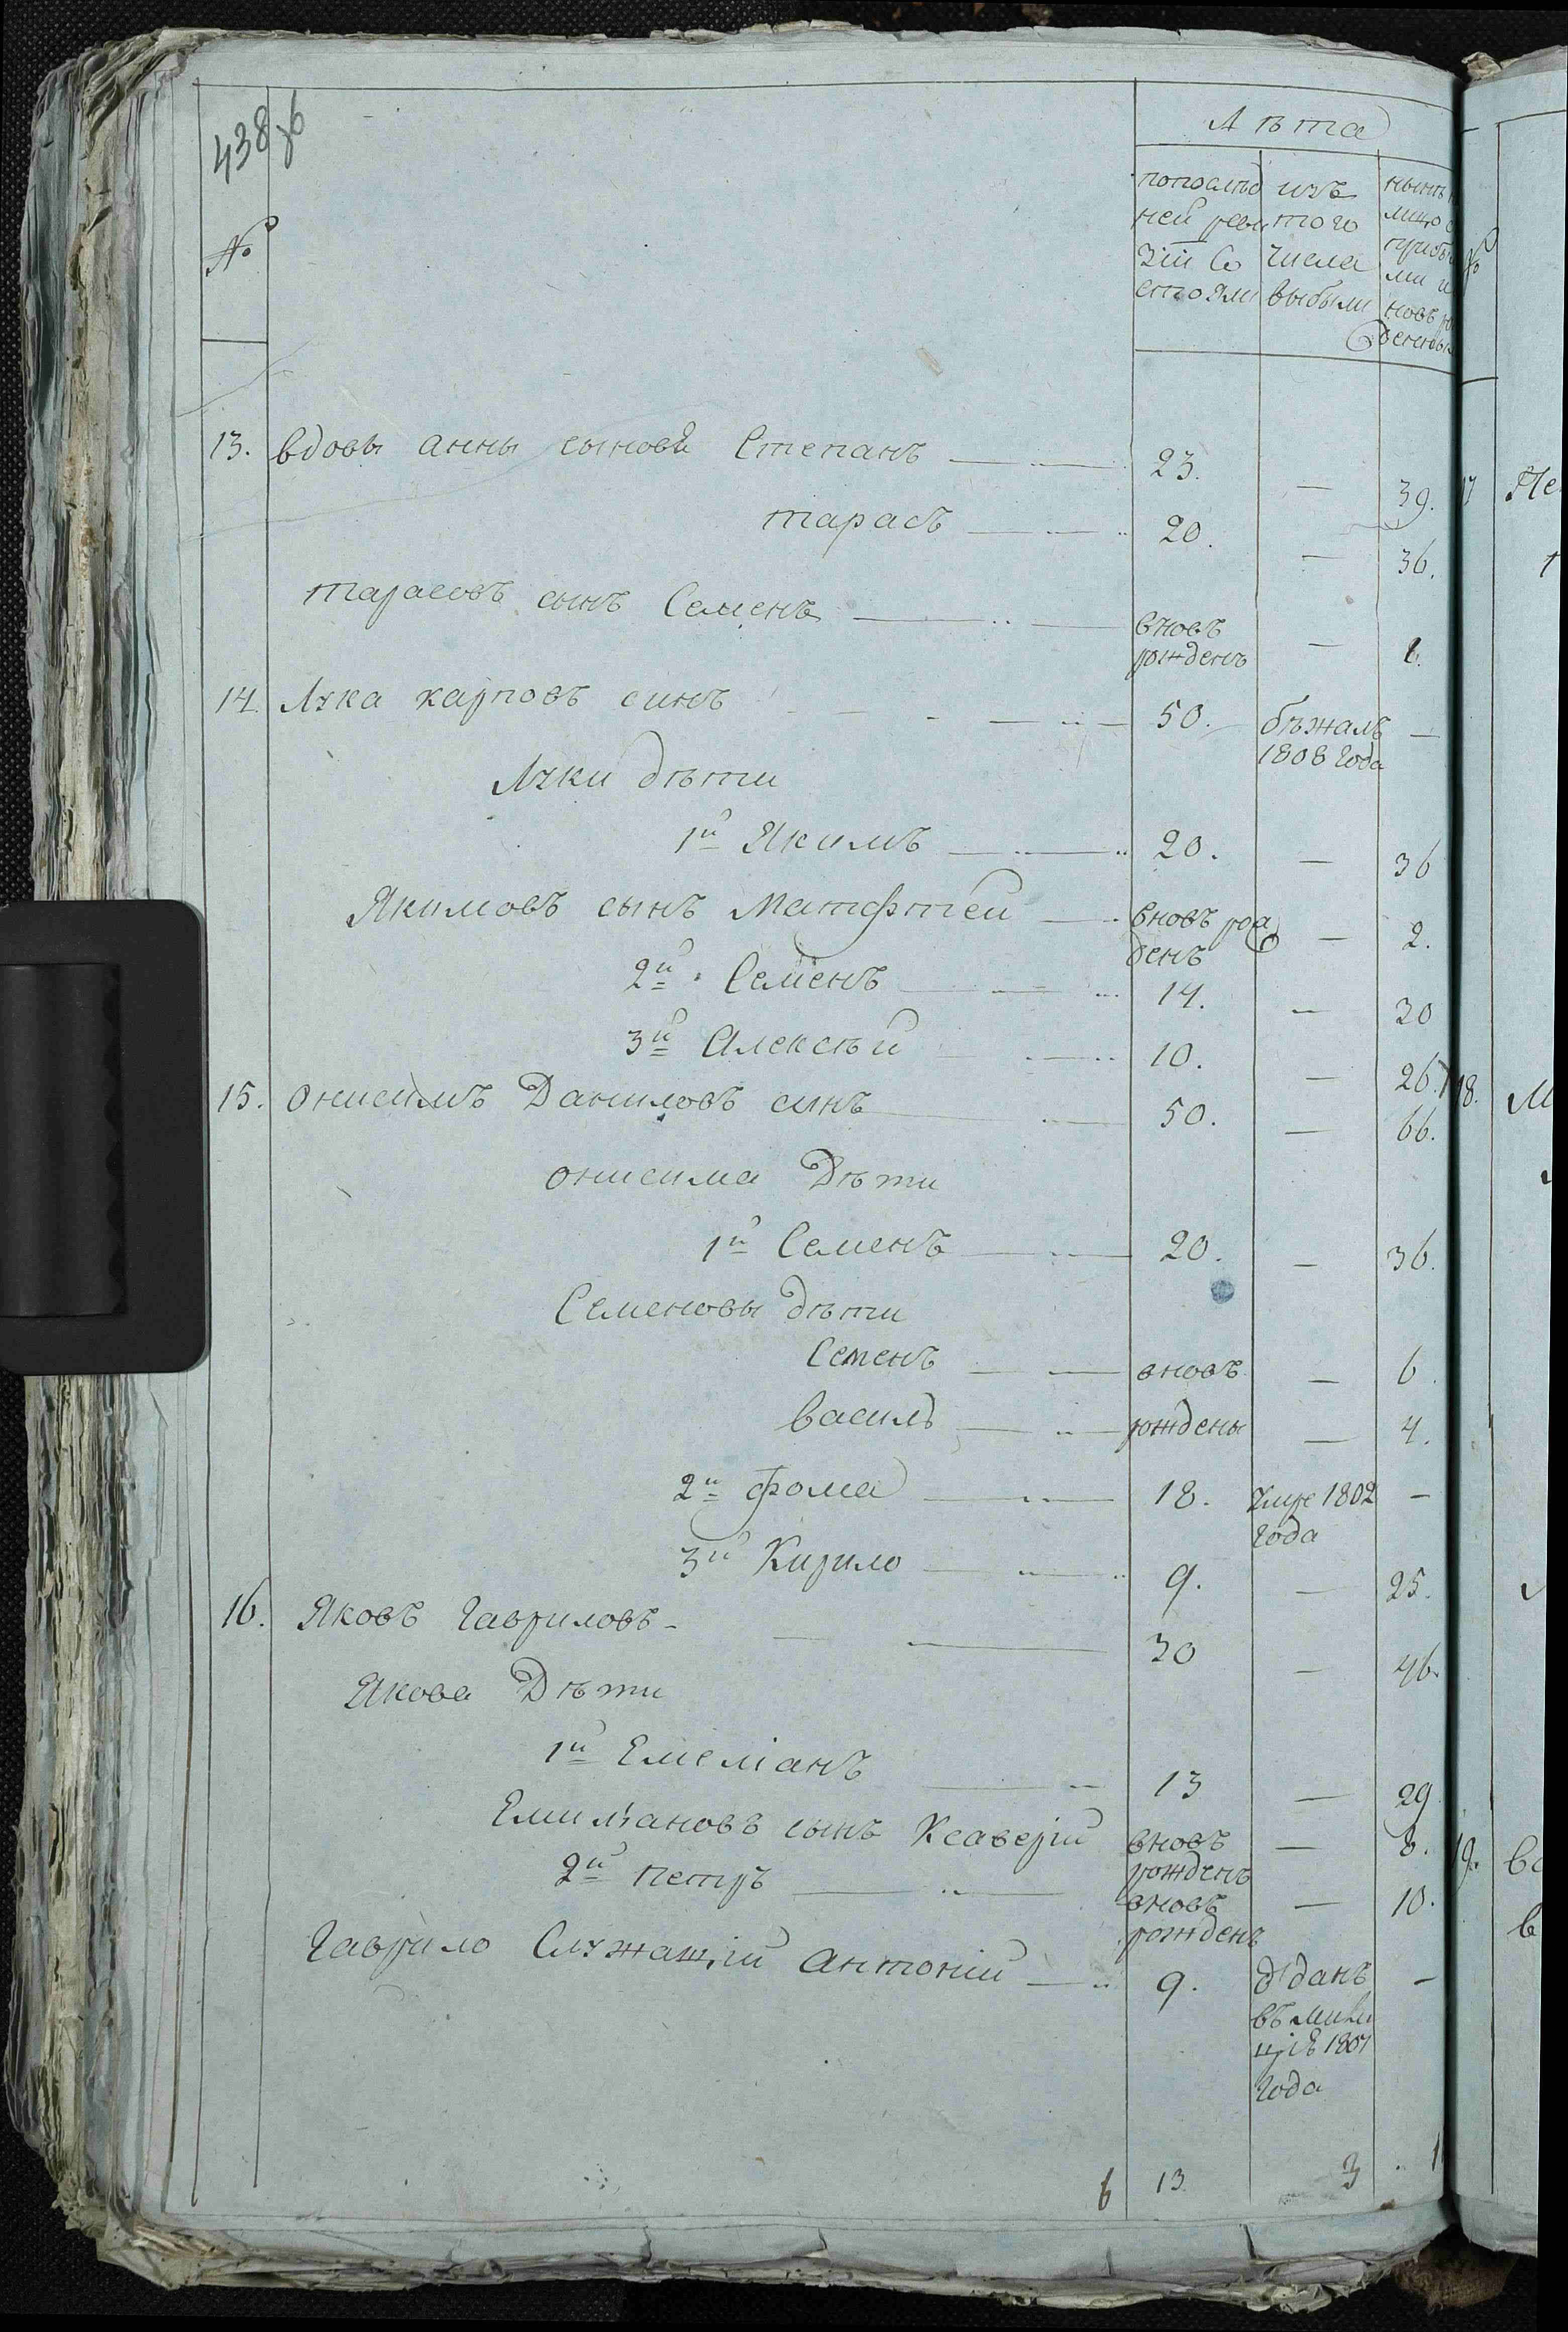 438 об
Лѣта
№
попослѣд
ней реви
зіи Со
стояли
изъ
того
числа
выбыли
нынѣ
лицо
прибы
ми и
новъ ро
жденны
13. вдовы анны сыновя Степанъ 23. — 39.
тарасъ 20. — 36.
тарасовъ сынъ Семенъ вновь рожденъ —
14. Лука карповъ синъ 50. бѣжалъ 1808 года —
Луки дѣти
1й Якимъ 20. — 36
Якимовъ сынъ Матфтей вновь рож денъ — 2.
2й Семенъ 14. — 30
3й Алексѣй 10. — 26.
15. онисимъ Даниловъ синъ 50. — 66.
онисима Дѣти
1й Семенъ 20. — 36.
Семеновы дѣти
Семенъ вновь — 6.
василь рождены — 4.
2й фома 18. умре 1802 года —
3й Кирило 9. — 25.
16. Яковъ Гавриловъ 30 — 46.
Якова Дѣти
1й Емеліанъ 13 — 29
Емиліановъ сынъ Ксаверій вновь рожденъ — 8.
2й петръ вновь рожденъ — 10.
Гаврило Служащій антоній 9. ѿданъ въ мили ціѣ 1807 года —
6 13. 3